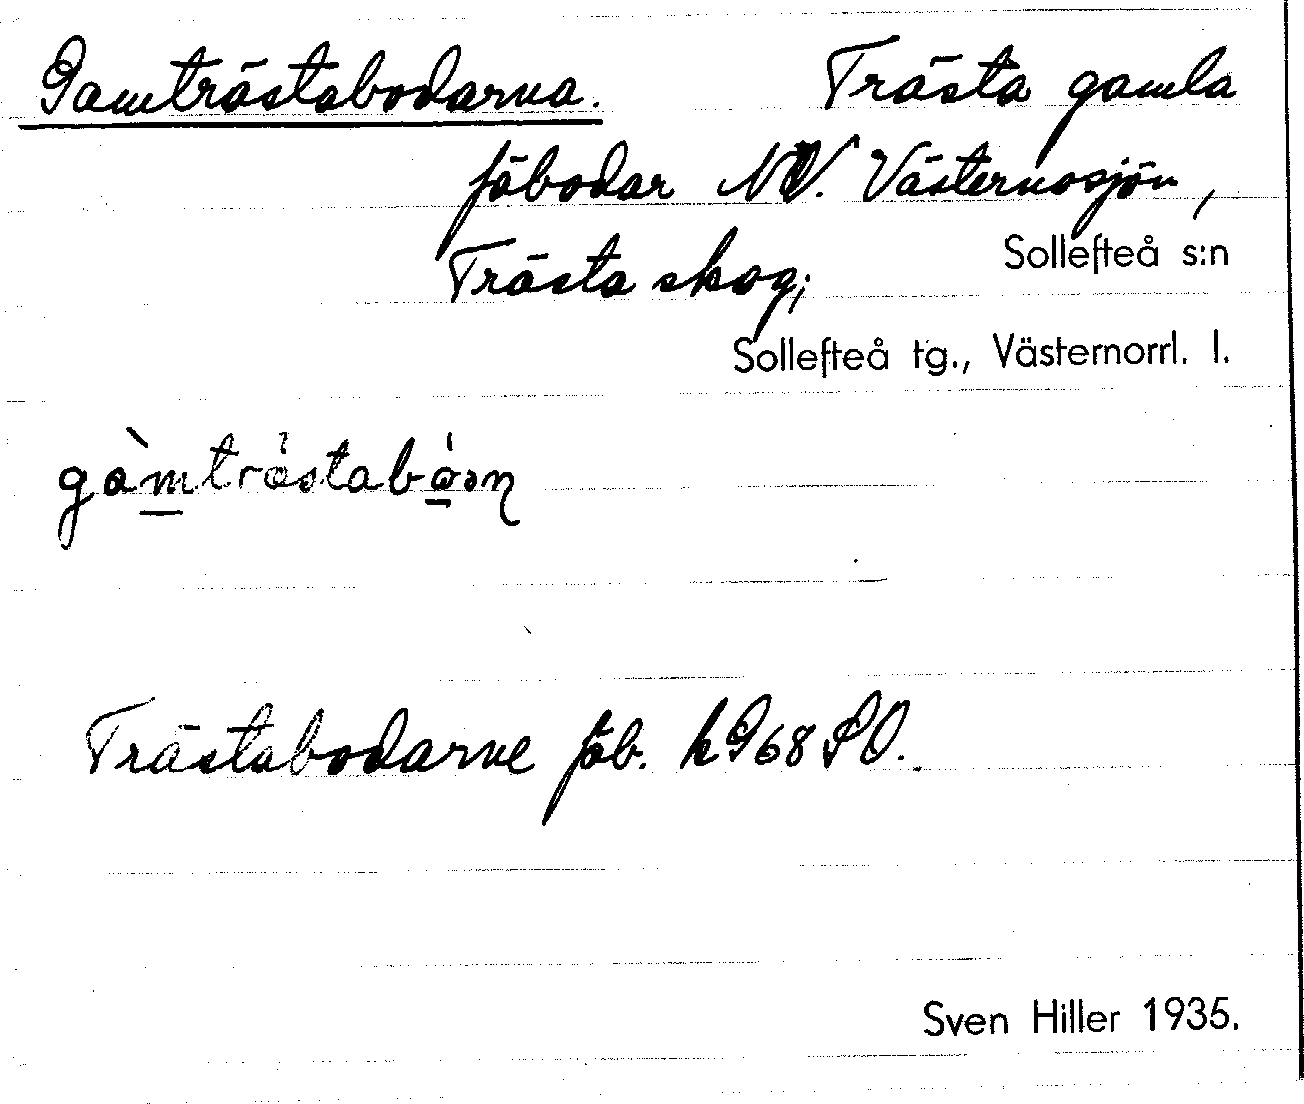 Gamträstabodarna. Trästa gamla
fäbodar NV. Västernosjön,
Trästa skog; Sollefteå s:n
Sollefteå tg., Västernorrl. l.
Trästabodarne fäb. k 968 SO.
Sven Hiller 1935.